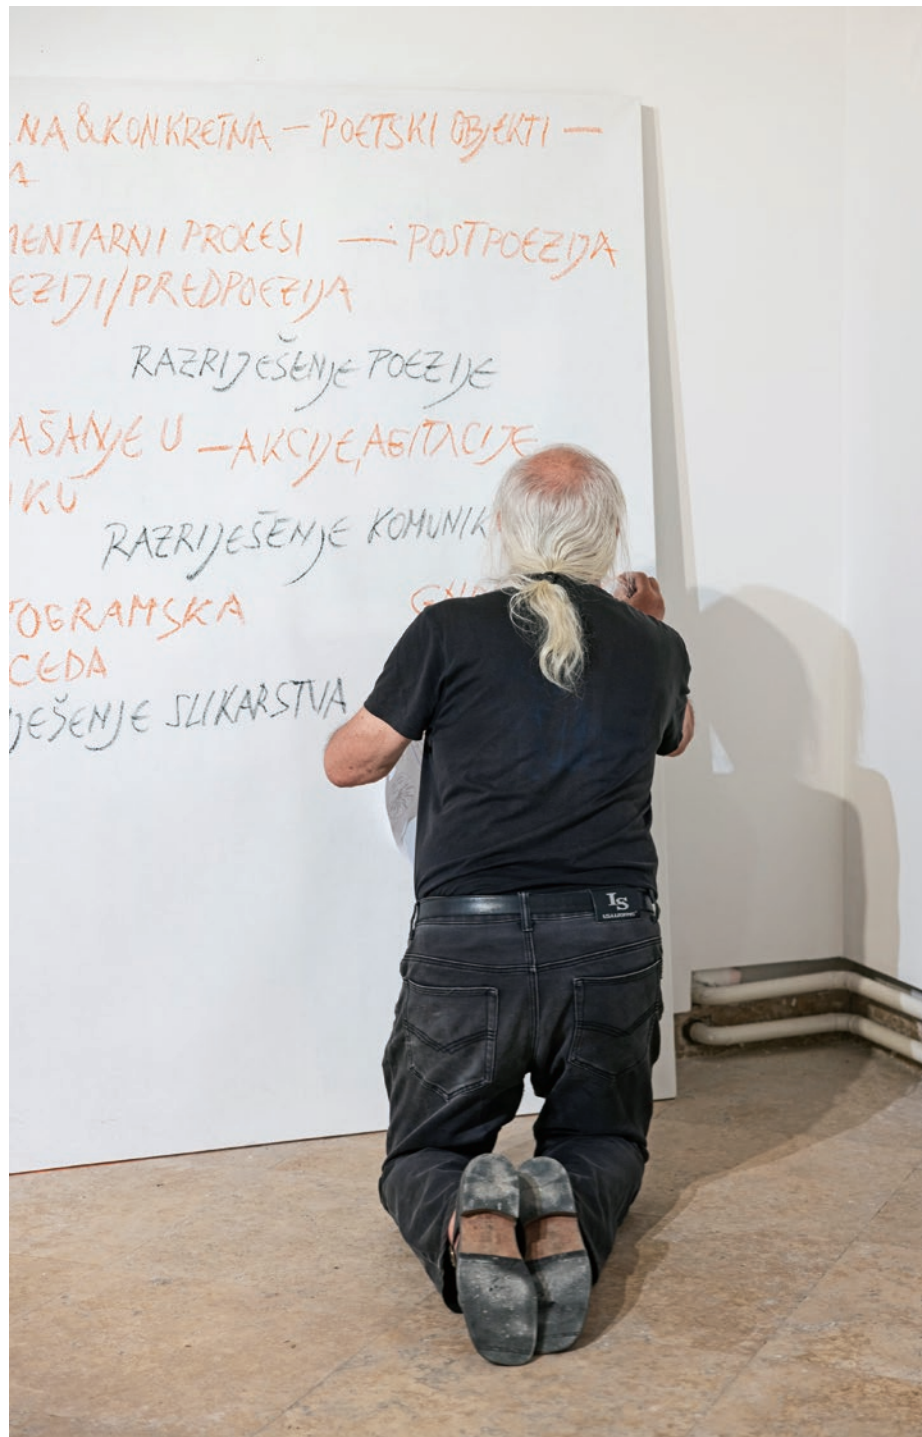 NA & KONKRETNA — POETSKI OBJEKTI —
A
MENTARNI PROCESI — POSTPOEZIJA
EZIJI/PREDPOEZIJA
RAZRIJEŠENJE POEZIJE
AŠANJE U — AKCIJE, AGITACIJE
IKU
RAZRIJEŠENJE KOMUNIK
TOGRAMSKA
CEDA
JEŠENJE SLIKARSTVA
LS